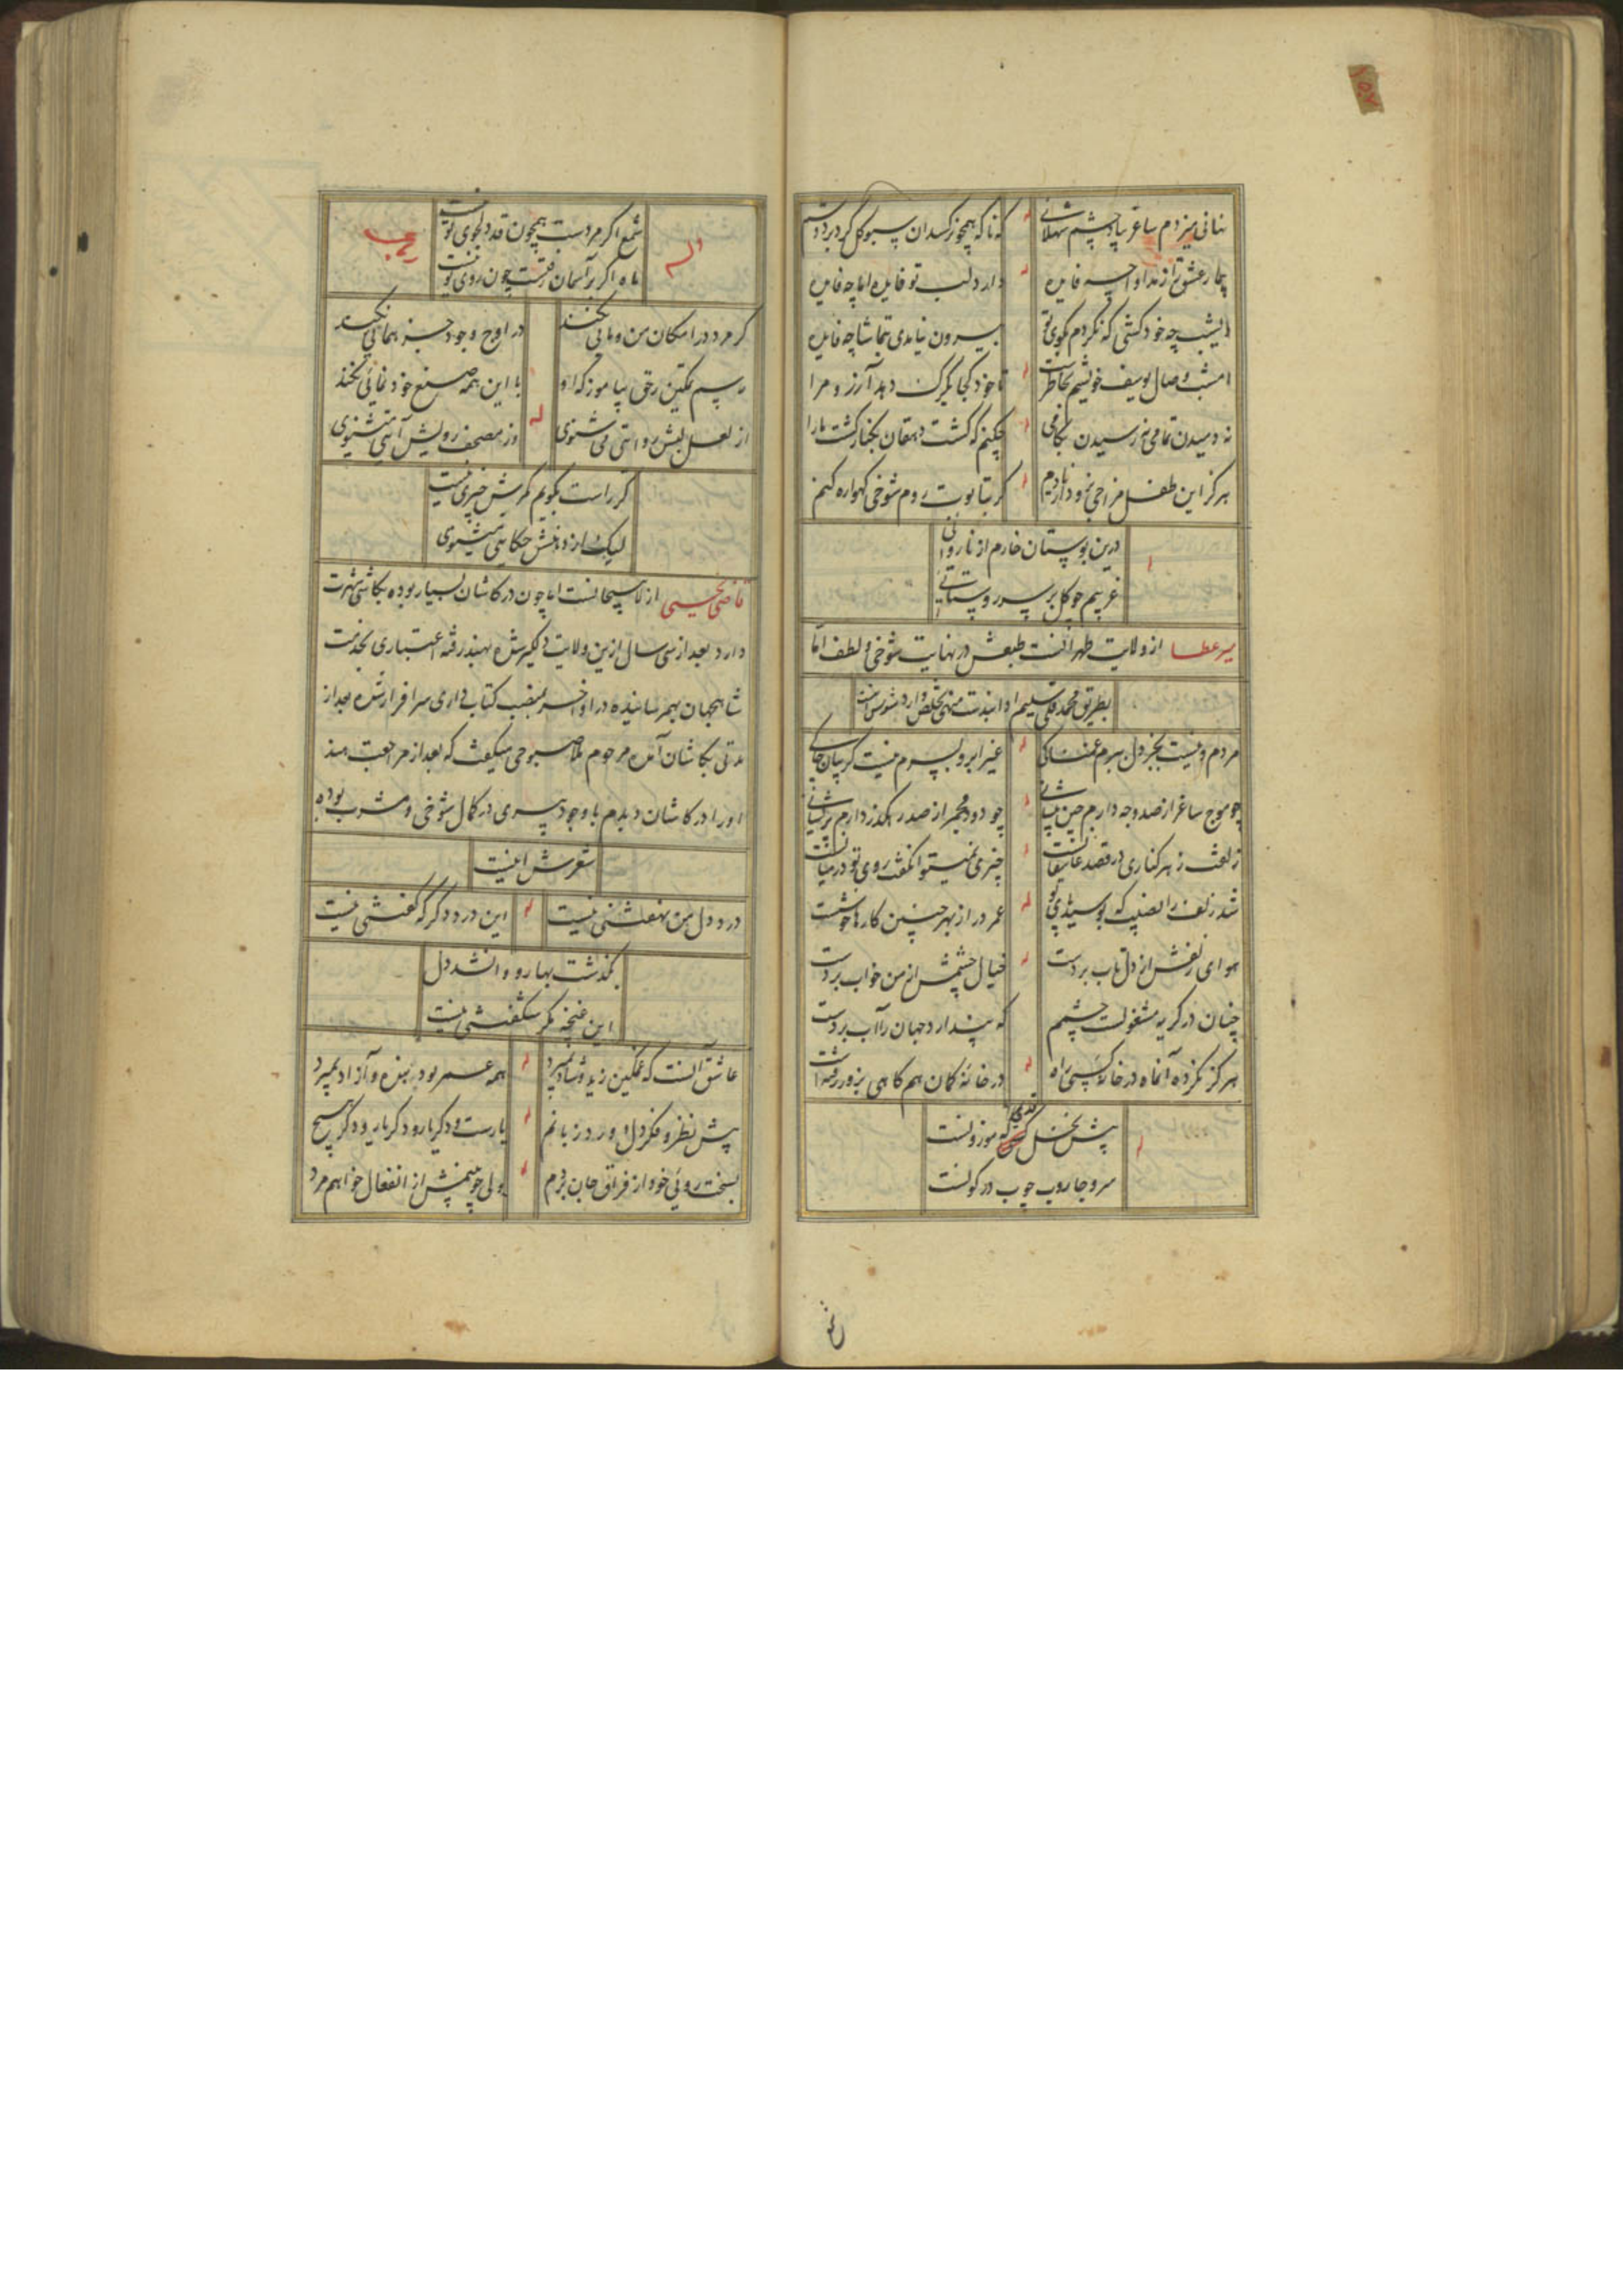 نهانی میزدم ساغر بیاد چشم شهلائی
که ناگه همچو نرکسدان سبو کل کرد بر دوشم
بیمار عشق را ز مداوا چه فایده
دارد لبت تو فایده اما چه فایده
دیشب چه خودکشی که نکردم بکوی تو
بیرون نیامدی بتماشا چه فایده
امشب وصال یوسف خویشم بخاطرست
تا خود کجا بگرک دهد آرزو مرا
نه دمیدن تمامی نه رسیدن بکامی
چکنم که کشت دهقان بکنار کشت ما را
هرکز این طفل مزاجی نرود از یادم
کر بتابوت روم شوخی کهواره کنم
درین بوستان خارم از ناروائی
غریبم چو کل بر سر روستائی
میر عطا از ولایت طهرانست طبعش در نهایت شوخی و لطف اما
بطریق محمد قلی سلیم اوانیدت تخلص دارد شعرش اینست
مردم و نیست بجز دل برم غمناکی
غیر ابرو بسرم نیست کریبان چاکی
چو موج ساغر از صد وجه دارم چین پیشانی
چو دود مجمر از صد رهکذر دارم پریشانی
زلفت ز هر کناری در قصد عاشقانست
چیزی نمیتوان کفت روی تو در میانست
شد زلف را نصیب که بوسید پای تو
عمر دراز بهر چنین کارها خوشست
هوای زلفش از دل تاب بردست
خیال چشمش از من خواب بردست
چنان در کریه مشغولست چشمم
که پندارد جهان را آب بردست
هرکز نکرده آنماه در خانه کسی راه
در خانه کمان هم کاهی بزور رفته است
پیش نخل قدی که موزونست
سرو جاروب چوب در کونست
شمع اکر مردست همچون قد دلجوی تو نیست
ماه اکر بر آسمان رفتست چون روی تو نیست
کر مرد در امکان من و مائی نکند
در اوج وجود جز همائی نکند
رسم تمکین ز حق بیاموز که او
با این همه صنع خودنمائی نکند
از لعل لبش روایتی می شنوی
وز مصحف رویش آیتی میشنوی
کر راست بکویم کمرش چیزی نیست
لیک از دهنش حکایتی میشنوی
قاضی یحیی از لاهیجانست اما چون در کاشان بسیار بوده بکاشی شهرت
دارد بعد از سی سال ازین ولایت دلکیر شده بهند رفته اعتباری بخدمت
شاهجهان بهمرسانیده در اواخر بمنصب کتابداری سرافراز شده بعد از
مدتی بکاشان آمده مرحوم ملا صبوحی میکفت که بعد از مراجعت هند
او را در کاشان دیدم با وجود پیری در کمال شوخی و مشرب بوده
شعرش اینست
درد دل من نهفتنی نیست
این درد دکر که کفتنی نیست
بکذشت بهار و وا نشد دل
این غنچه مکر شکفتنی نیست
عاشق آنست که غمکین زید و شاد بمیرد
همه عمر بود بنده و آزاد بمیرد
پیش نظر و فکر دل و ورد زبانم
یارست و دکر یار و دکر یار و دکر هیچ
بسخت روئی خود از فراق جان بردم
ولی چو بینمش از انفعال خواهم مرد